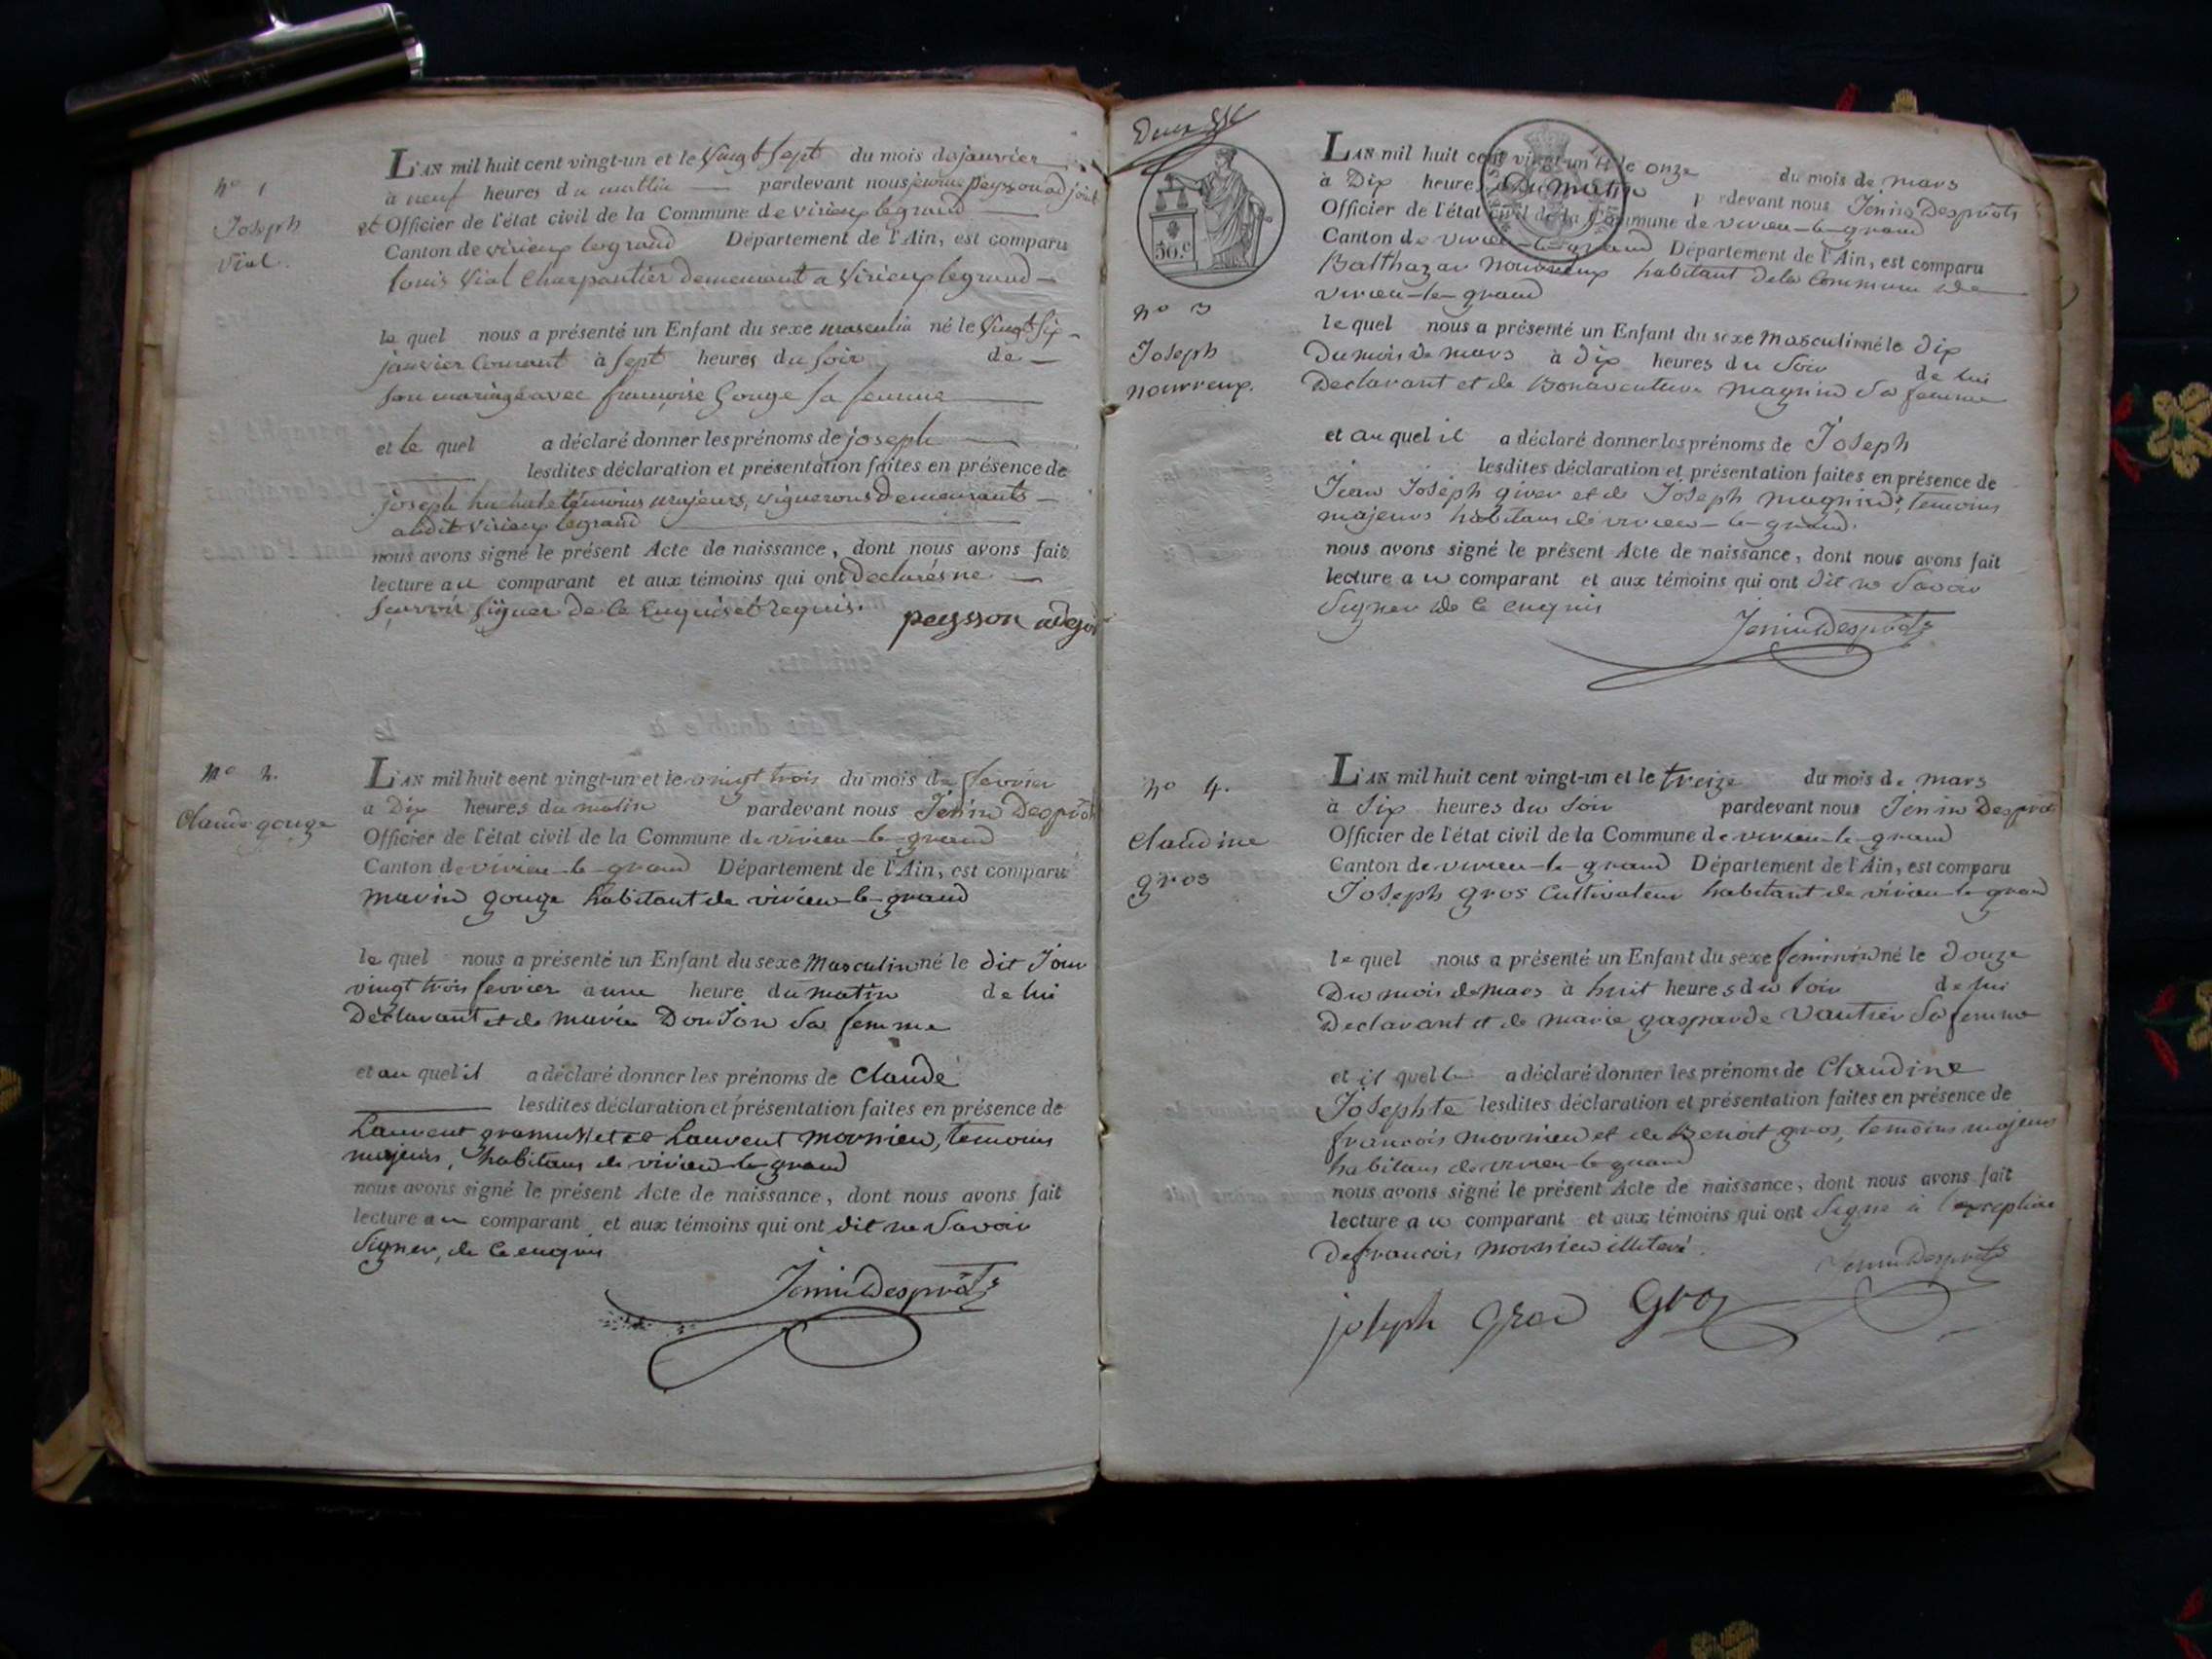 nº 1
Joseph
Vial.
L'AN mil huit cent vingt-un et le Vingt Sept du mois de janvier
à neuf heures du mattin pardevant nous peysson adjoint
et Officier de l'état civil de la Commune de virieux legrand
Canton de virieux legrand Département de l'Ain, est comparu
louis Vial Charpantier demeurant a Virieux legrand
le quel nous a présenté un Enfant du sexe masculin né le Vingt Six
janvier Courant à Sept heures du Soir de
Son mariage avec françoise Gouge sa femme
et le quel a déclaré donner les prénoms de joseph
lesdites déclaration et présentation faites en présence de
joseph témoins majeurs, vignerons demeurants
audit Virieux legrand
nous avons signé le présent Acte de naissance, dont nous avons fait
lecture au comparant et aux témoins qui ont declarés ne
scavoir signer de ce Enquis et requis.
peysson adjoi
nº 2.
Claude gouge
L'AN mil huit cent vingt-un et le vingt trois du mois de fevrier
a Dix heures du matin pardevant nous Jenin Desprôts
Officier de l'état civil de la Commune de virieu-le-grand
Canton de virieu-le-grand Département de l'Ain, est comparu
marin gouge habitant de virieu-le-grand
le quel nous a présenté un Enfant du sexe Masculin né le dit Jour
vingt trois fevrier a une heure du matin de lui
Déclarant et de marie Donjon Sa femme
et au quel il a déclaré donner les prénoms de Claude
lesdites déclaration et présentation faites en présence de
Laurent et de Laurent mornieu, temoins
majeurs, habitans de virieu-le-grand
nous avons signé le présent Acte de naissance, dont nous avons fait
lecture au comparant et aux témoins qui ont dit ne Savoir
Signer, de ce enquis
Jenin Desprôts
50.c
nº 3
Joseph
nourreux.
L'AN mil huit cent vingt-un et le onze du mois de mars
à Dix heures du matin pardevant nous Jenin Desprôts
Officier de l'état civil de la Commune de virieu-le-grand
Canton de virieu-le-grand Département de l'Ain, est comparu
Balthazar nourreux habitant dela Commune de
virieu-le-grand
le quel nous a présenté un Enfant du sexe Masculin né le dix
Du mois de mars à dix heures du Soir de lui
Declarant et de Bonaventure magnin Sa femme
et au quel il a déclaré donner les prénoms de Joseph
lesdites déclaration et présentation faites en présence de
Jean Joseph et de Joseph magnin, temoins
majeurs habitans de virieu-le-grand.
nous avons signé le présent Acte de naissance, dont nous avons fait
lecture a u comparant et aux témoins qui ont dit ne Savoir
Signer de ce enquis
Jenin Desprôts
nº 4.
Claudine
gros
L'AN mil huit cent vingt-un et le treize du mois de mars
à Six heures du Soir pardevant nous Jenin Desprôts
Officier de l'état civil de la Commune de virieu-le-grand
Canton de virieu-le-grand Département de l'Ain, est comparu
Joseph gros Cultivateur habitant de virieu-le-grand
le quel nous a présenté un Enfant du sexe feminin né le Douze
Du mois de mars à huit heures du Soir de lui
Declarant et de marie gasparde Vautier Sa femme
et il quelle a déclaré donner les prénoms de Claudine
Josephte lesdites déclaration et présentation faites en présence de
francois mornieu et de Benoit gros, temoins majeurs
habitans de virieu-le-grand
nous avons signé le présent Acte de naissance, dont nous avons fait
lecture a u comparant et aux témoins qui ont Signé à l'exception
De francois mornieu illiteré.
Jenin Desprôts
joseph gros Gros